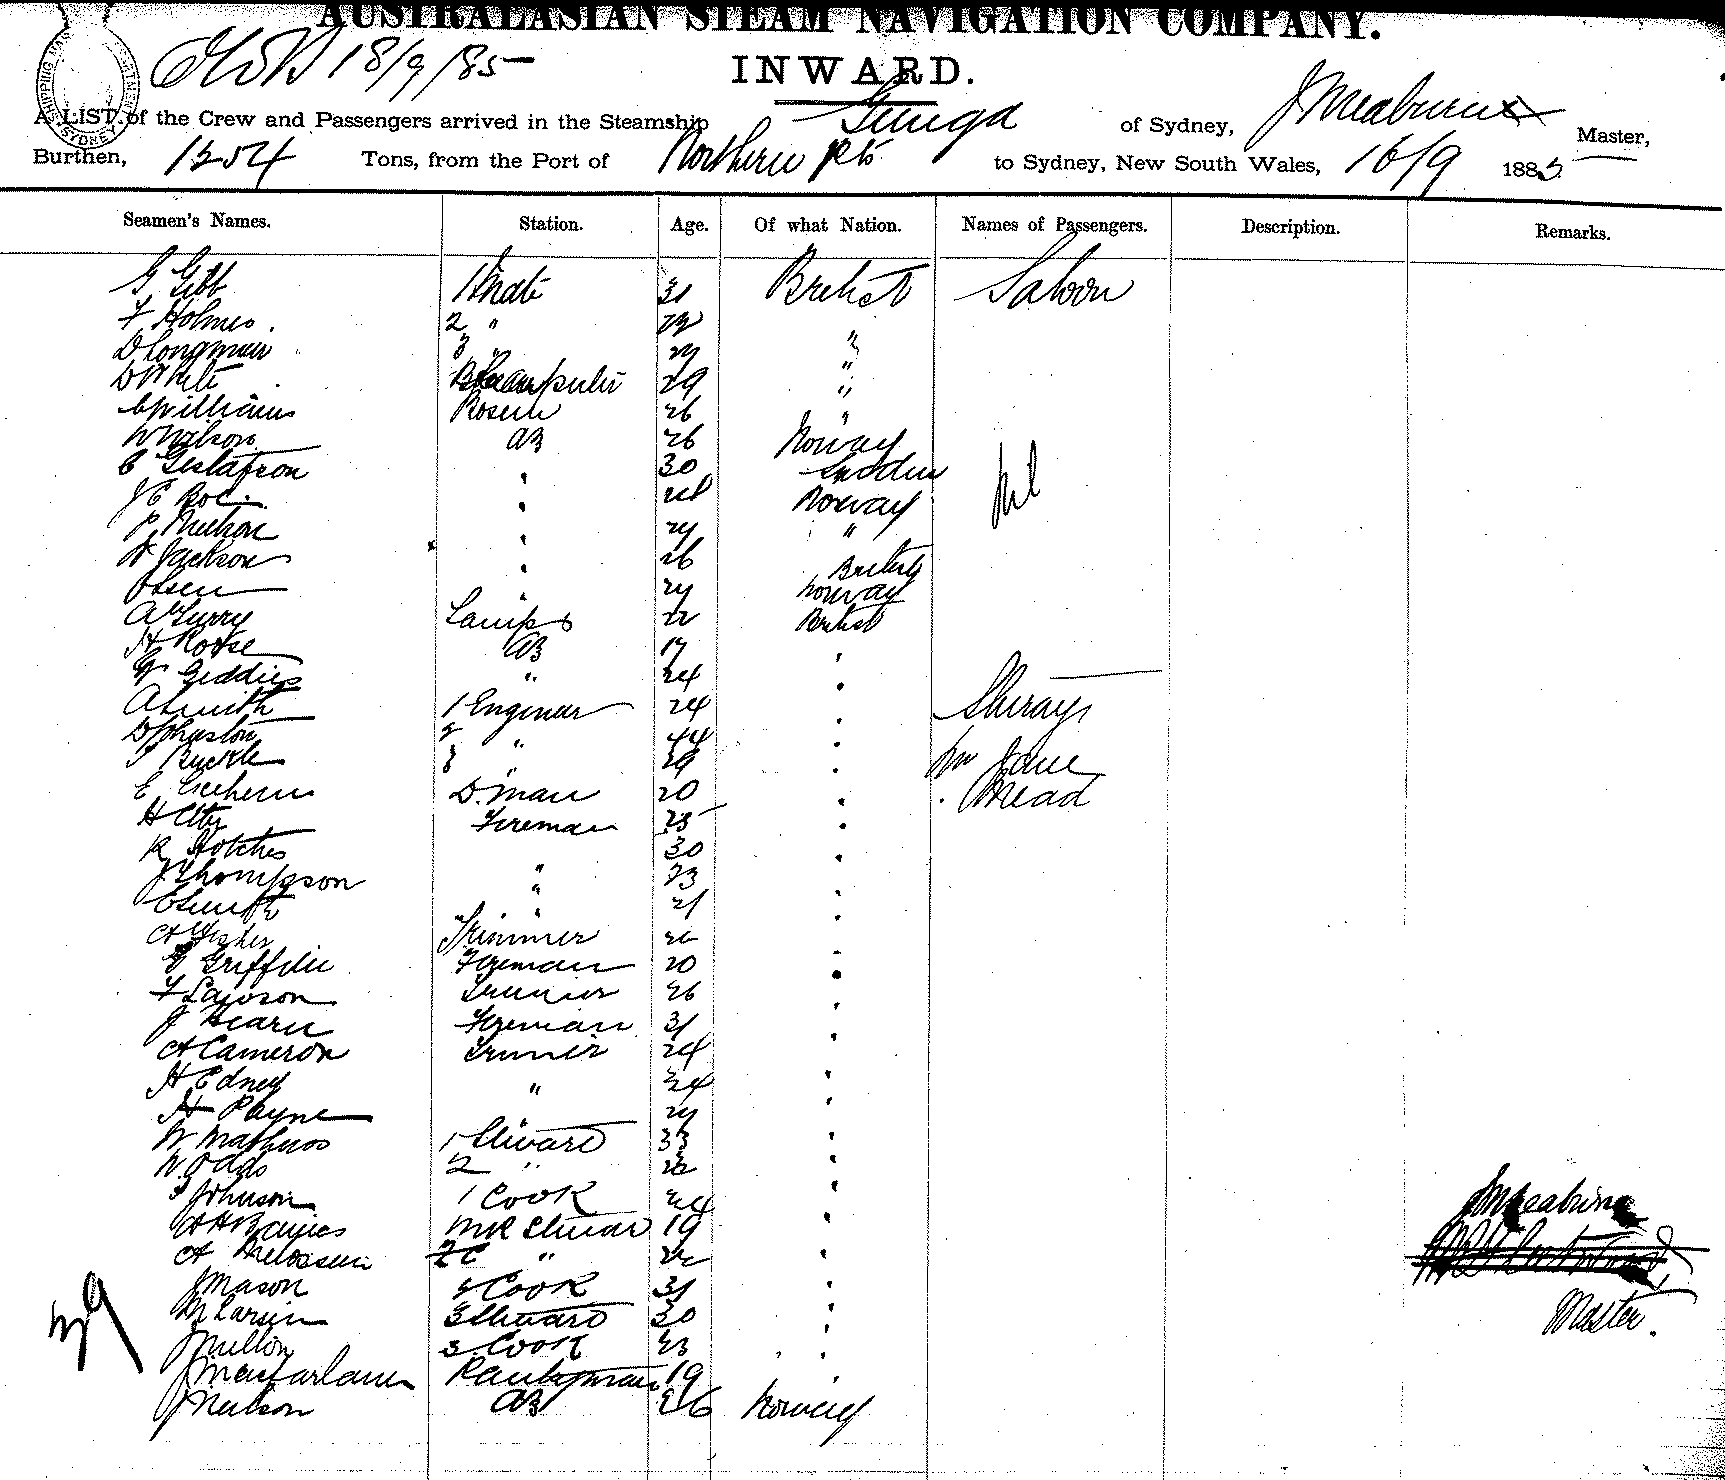 AUSTRALASIAN STEAM NAVIGATION COMPANY.
18/9/85
INWARD.
SHIPPING MASTER SYDNEY
A LIST of the Crew and Passengers arrived in the Steamship Gunga of Sydney, J Meaburn Master,
Burthen, 1254 Tons, from the Port of Northern Pts to Sydney, New South Wales, 16/9 1885
Seamen's Names. Station. Age. Of what Nation. Names of Passengers. Description. Remarks.
G Gibb 1 Mate 31 British Saloon
F Holmes. 2 "
D Longmuir 3 " 27 "
D White 29 "
C Williams Bosun 26 "
W Wilson AB 26 Norway
C Gustafson " 30 Sweden nil
J E Boe " Norway
P Neilson " 27 "
W Jackson " 26 British
Olsen " 27 Norway
A McGurry Lamps 22 British
H Rouse AB 17 "
G Geddies " 24 "
A Smith 1 Engineer 24 " Steerage
D Johnston 2 " 44 "
Buckle 3 " 39 " Mr Jane
E D. man 20 " " Mead
H Fireman 25 "
R Hotches 30 "
J Thompson " 23 "
E Smith " 21 "
A Fisher Trimmer 26 "
G Griffin Fireman 20 "
F Lawson Trimmer 26 "
J Hearn Fireman 31 "
A Cameron Trimmer 24 "
H Edney " 34 "
H Payne " 27 "
W Mathews 1 Steward 33 "
W. Odds 2 " "
Johnson 1 Cook 24 "
A H Baines M R Steward 19 "
A " 22 "
J Mason 2 Cook 31 "
M Larsen 3 Steward 30 "
J 3 Cook 23 "
J Macfarlane Pantryman 19 "
J Neilson AB 26 Norway
39
J Meaburn
Master.